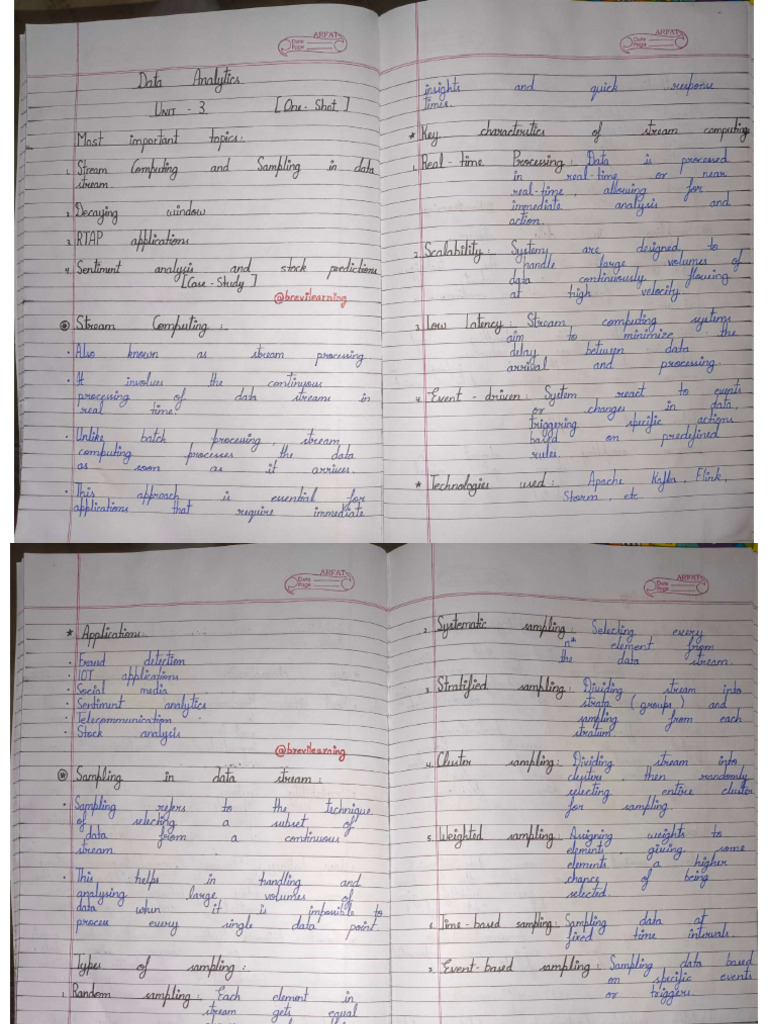 ARFAT
Date
Page
Data Analytics
UNIT - 3 [One-Shot]
Most important topics:
1. Stream Computing and Sampling in data
stream.
2. Decaying window
3. RTAP applications
4. Sentiment analysis and stock predictions
[Case-Study]
@brevilearning
Stream Computing:
• Also known as stream processing
• It involves the continuous
processing of data streams in
real time.
• Unlike batch processing, stream
computing processes the data
as soon as it arrives.
• This approach is essential for
applications that require immediate
ARFAT
Date
Page
insights and quick response
times.
* Key characteristics of stream computing
1. Real-time Processing: Data is processed
in real-time or near
real-time, allowing for
immediate analysis and
action.
2. Scalability: Systems are designed to
handle large volumes of
data continuously flowing
at high velocity
3. Low Latency: Stream computing systems
aim to minimize the
delay between data
arrival and processing.
4. Event-driven: System react to events
or changes in data,
triggering specific actions
based on predefined
rules.
* Technologies used: Apache Kafka, Flink,
Storm, etc
ARFAT
Date
Page
* Applications:
• Fraud detection
• IOT applications
• Social media
• Sentiment analytics
• Telecommunication
• Stock analysis
@brevilearning
Sampling in data stream:
• Sampling refers to the technique
of selecting a subset of
data from a continuous
stream
• This helps in handling and
analysing large volumes of
data when it is impossible to
process every single data point.
Types of sampling:
1. Random sampling: Each element in
stream gets equal
ARFAT
Date
Page
2. Systematic sampling: Selecting every
nth element from
the data stream.
3. Stratified sampling: Dividing stream into
strata (groups) and
sampling from each
stratum.
4. Cluster sampling: Dividing stream into
clusters, then randomly
selecting entire cluster
for sampling.
5. Weighted sampling: Assigning weights to
elements, giving some
elements a higher
chance of being
selected.
6. Time-based sampling: Sampling data at
fixed time intervals.
7. Event-based sampling: Sampling data based
on specific events
or triggers.